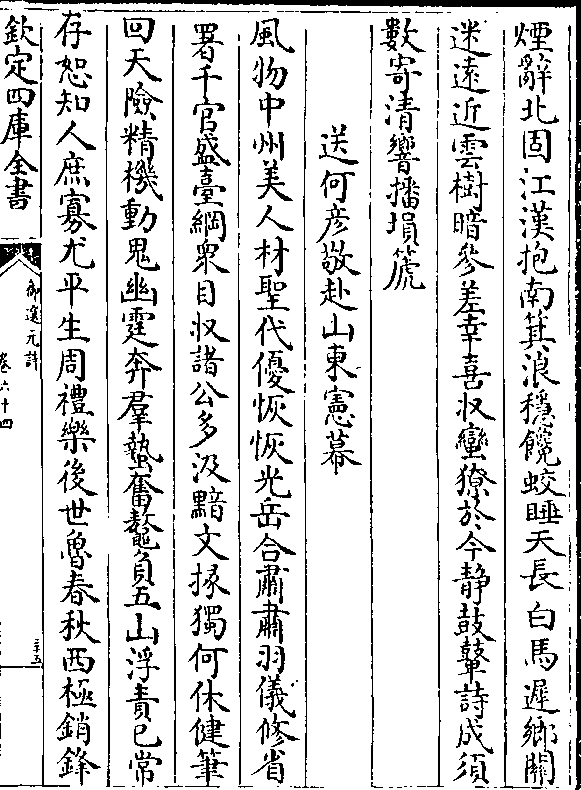 煙辭北固江漢抱南箕浪穩饞蛟睡天長白馬遲鄉關
迷遠近雲樹暗參差幸喜収蠻獠於今静鼓鼙詩成須
數寄清響播塤篪
送何彦敬赴山東憲幕
風物中州美人材聖代優恢恢光岳合肅肅羽儀修省
署千官盛臺綱衆目収諸公多汲黯文掾獨何休健筆
回天險精機動鬼幽霆奔羣蟄奮鼇負五山浮責已常
存恕知人庶寡尤平生周禮樂後世魯春秋西極銷鋒
欽定四庫全書
御選元詩
卷六十四
三五